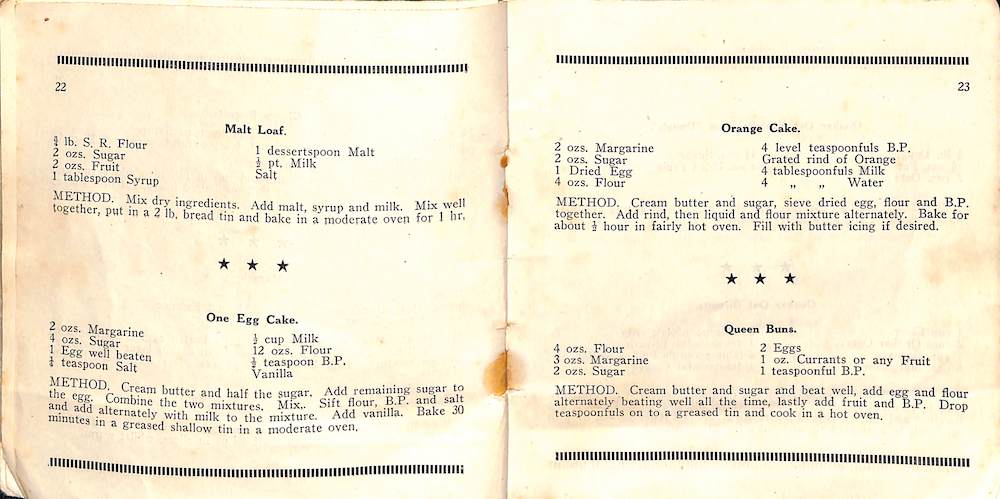 22
Malt Loaf.
¾ lb. S. R. Flour
2 ozs. Sugar
2 ozs. Fruit
1 tablespoon Syrup
1 dessertspoon Malt
½ pt. Milk
Salt
METHOD. Mix dry ingredients. Add malt, syrup and milk. Mix well
together, put in a 2 lb. bread tin and bake in a moderate oven for 1 hr.
★ ★ ★
One Egg Cake.
2 ozs. Margarine
4 ozs. Sugar
1 Egg well beaten
¼ teaspoon Salt
½ cup Milk
12 ozs. Flour
½ teaspoon B.P.
Vanilla
METHOD. Cream butter and half the sugar. Add remaining sugar to
the egg. Combine the two mixtures. Mix. Sift flour, B.P. and salt
and add alternately with milk to the mixture. Add vanilla. Bake 30
minutes in a greased shallow tin in a moderate oven.
23
Orange Cake.
2 ozs. Margarine
2 ozs. Sugar
1 Dried Egg
4 ozs. Flour
4 level teaspoonfuls B.P.
Grated rind of Orange
4 tablespoonfuls Milk
4 „ „ Water
METHOD. Cream butter and sugar, sieve dried egg, flour and B.P.
together. Add rind, then liquid and flour mixture alternately. Bake for
about ½ hour in fairly hot oven. Fill with butter icing if desired.
★ ★ ★
Queen Buns.
4 ozs. Flour
3 ozs. Margarine
2 ozs. Sugar
2 Eggs
1 oz. Currants or any Fruit
1 teaspoonful B.P.
METHOD. Cream butter and sugar and beat well, add egg and flour
alternately beating well all the time, lastly add fruit and B.P. Drop
teaspoonfuls on to a greased tin and cook in a hot oven.